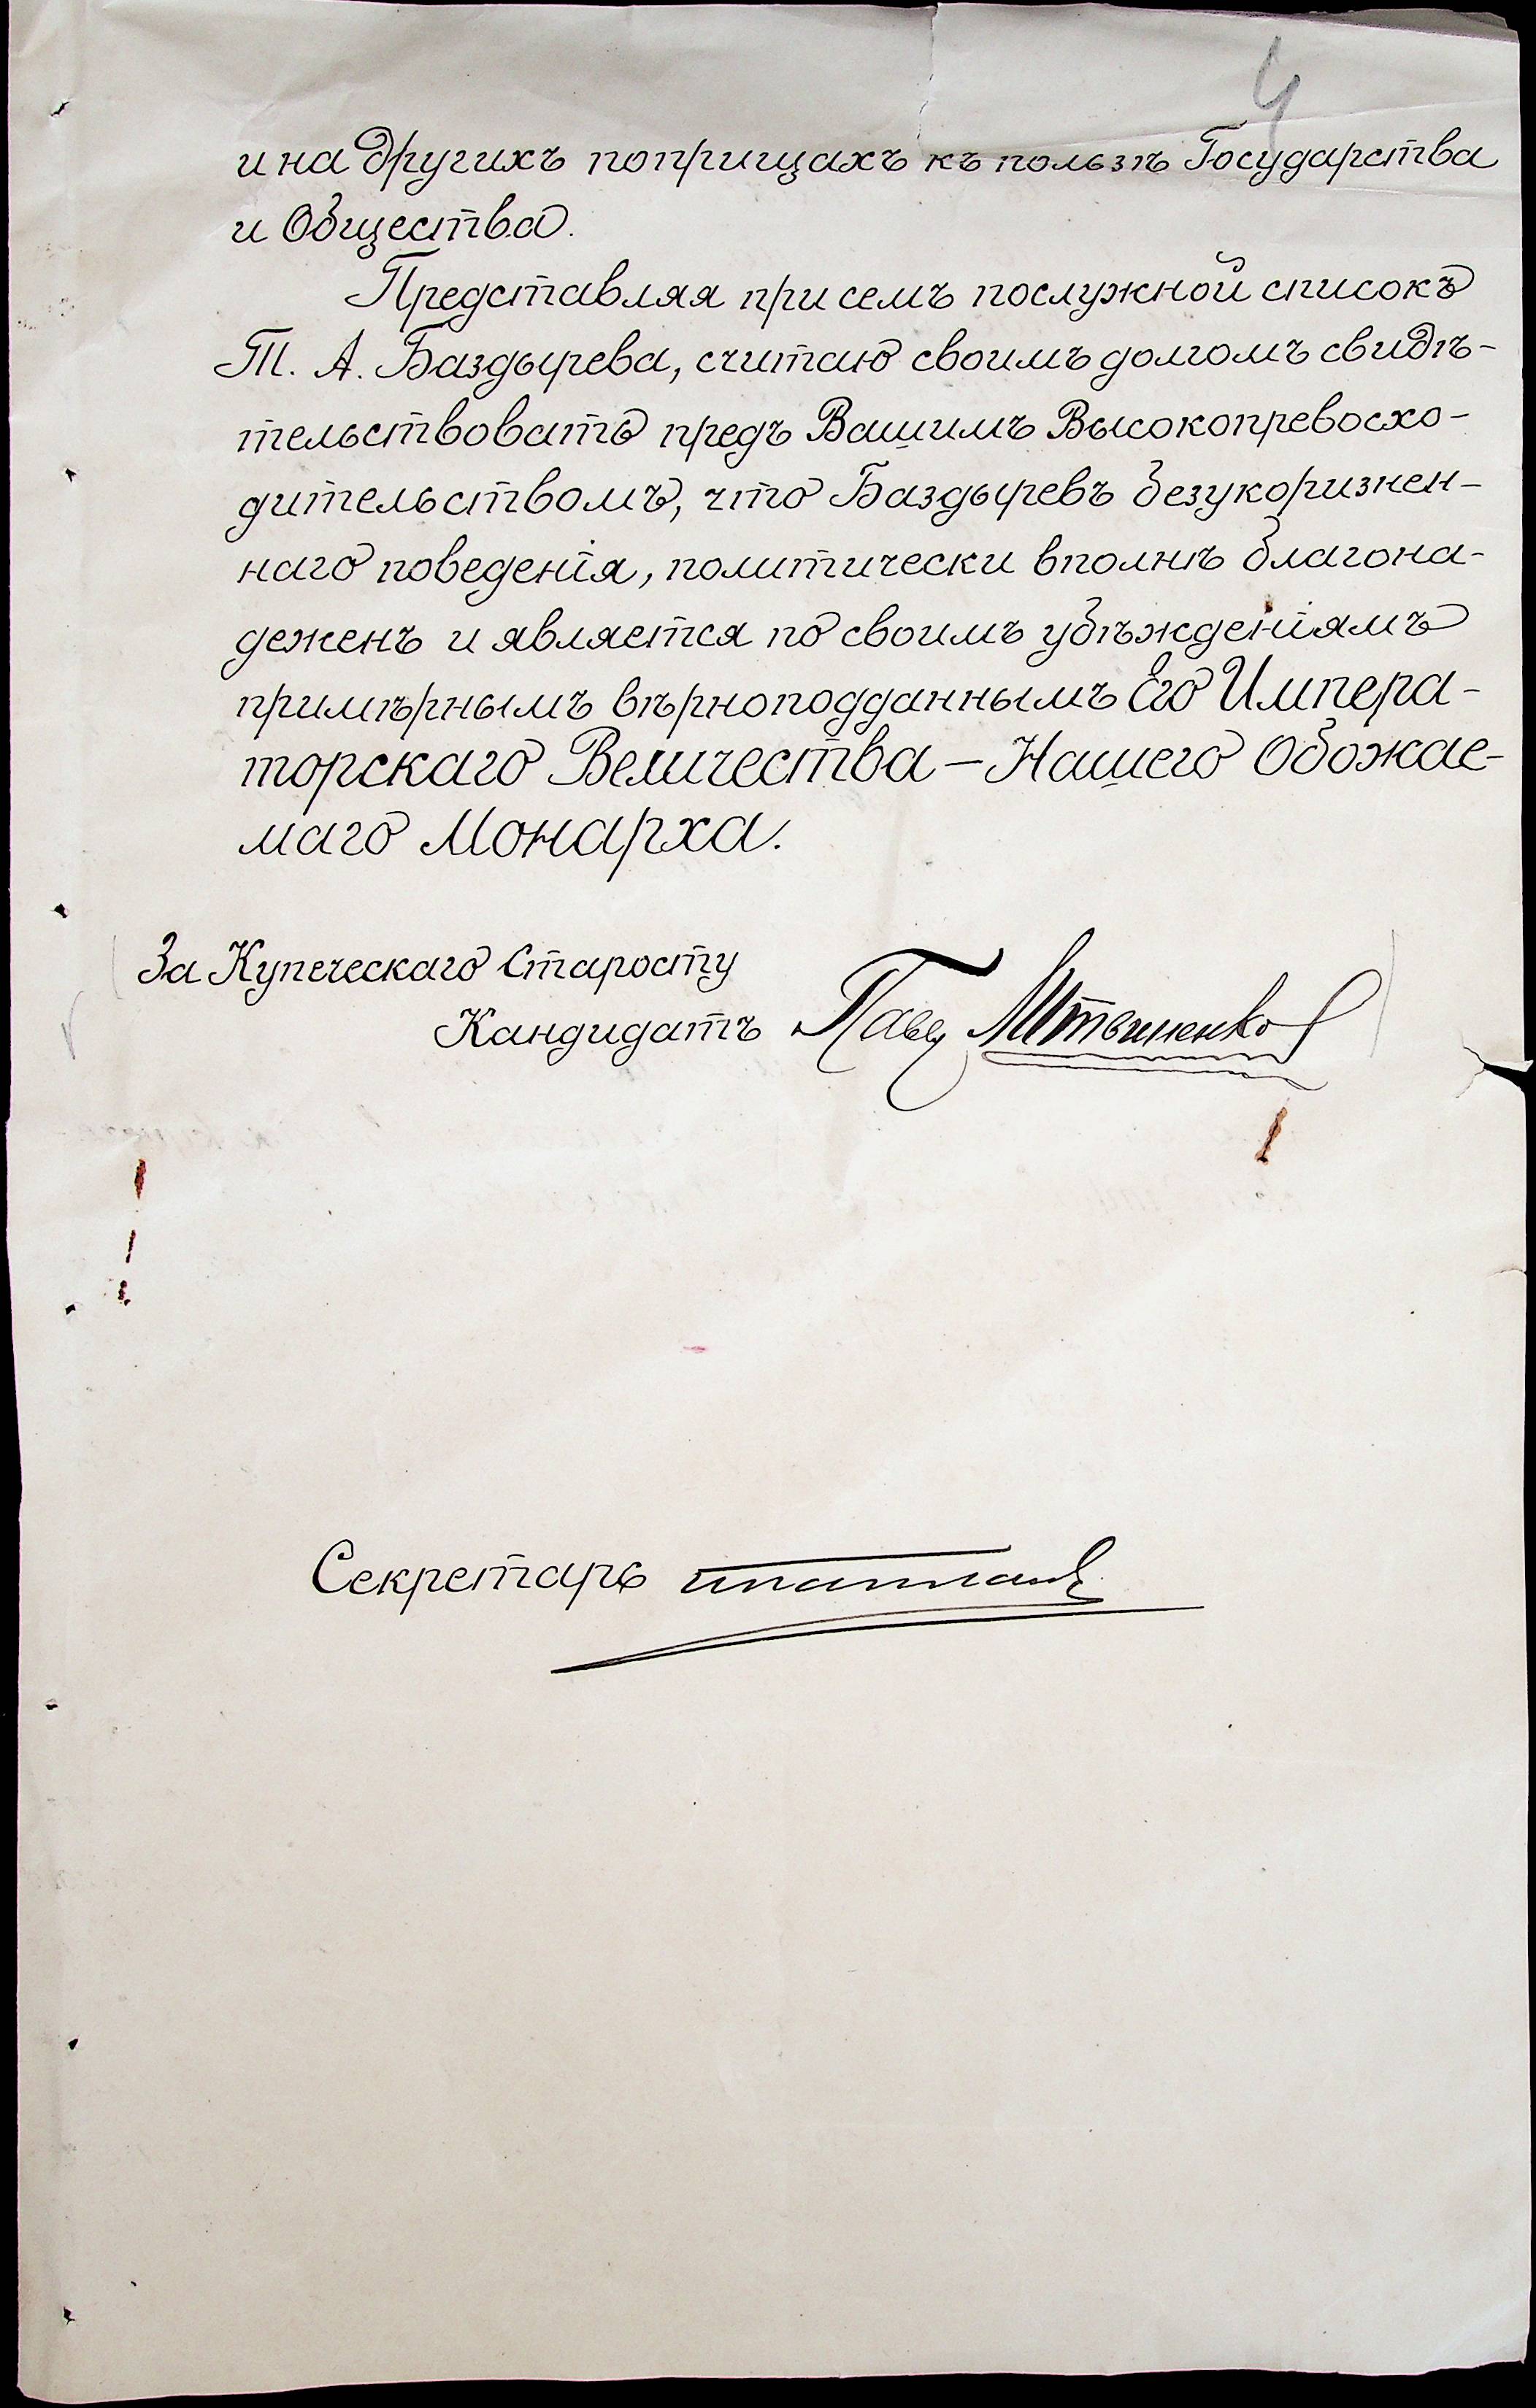 4
и на другихъ поприщахъ къ пользѣ Государства
и Общества.
Представляя при семъ послужной списокъ
Т. А. Баздырева, считаю своимъ долгомъ свидѣ-
тельствовать предъ Вашимъ Высокопревосхо-
дительствомъ, что Баздыревъ безукоризнен-
наго поведенія, политически вполнѣ благона-
деженъ и является по своимъ убѣжденіямъ
примѣрнымъ вѣрноподданнымъ Его Импера-
торскаго Величества – Нашего Обожае-
маго Монарха.
За Купеческаго Старосту
Кандидатъ
Секретарь